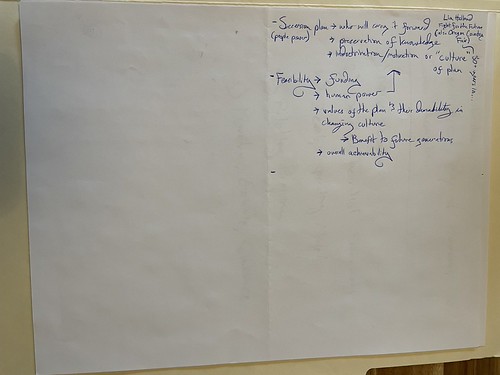 - Succession plan → who will carry it forward
(people power) → preservation of knowledge
→ indoctrination/motivation or "culture"
of plan
- Feasibility → funding
→ human power
→ values of the plan & their durability in
changing culture
→ Benefit to future generations
→ overall achievability
-
Lia Holland
Fight for the Future
Fair)
50+ years in...